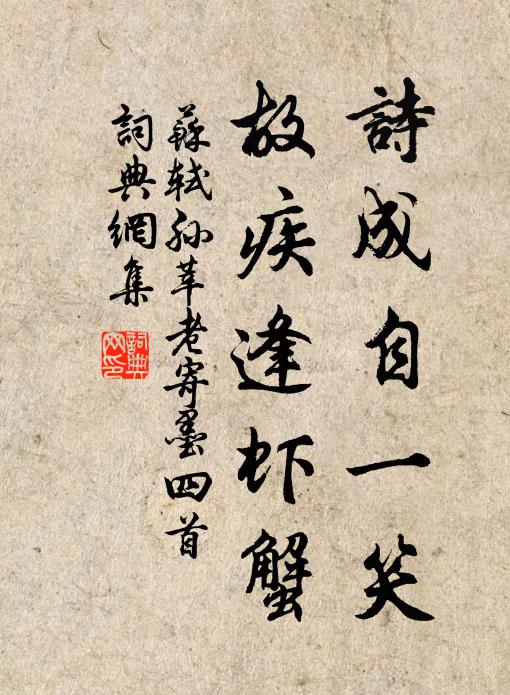 詩成自一笑
故疾逢虾蟹
蘇軾孙莘老寄墨四首
詞典網集
詞典网印